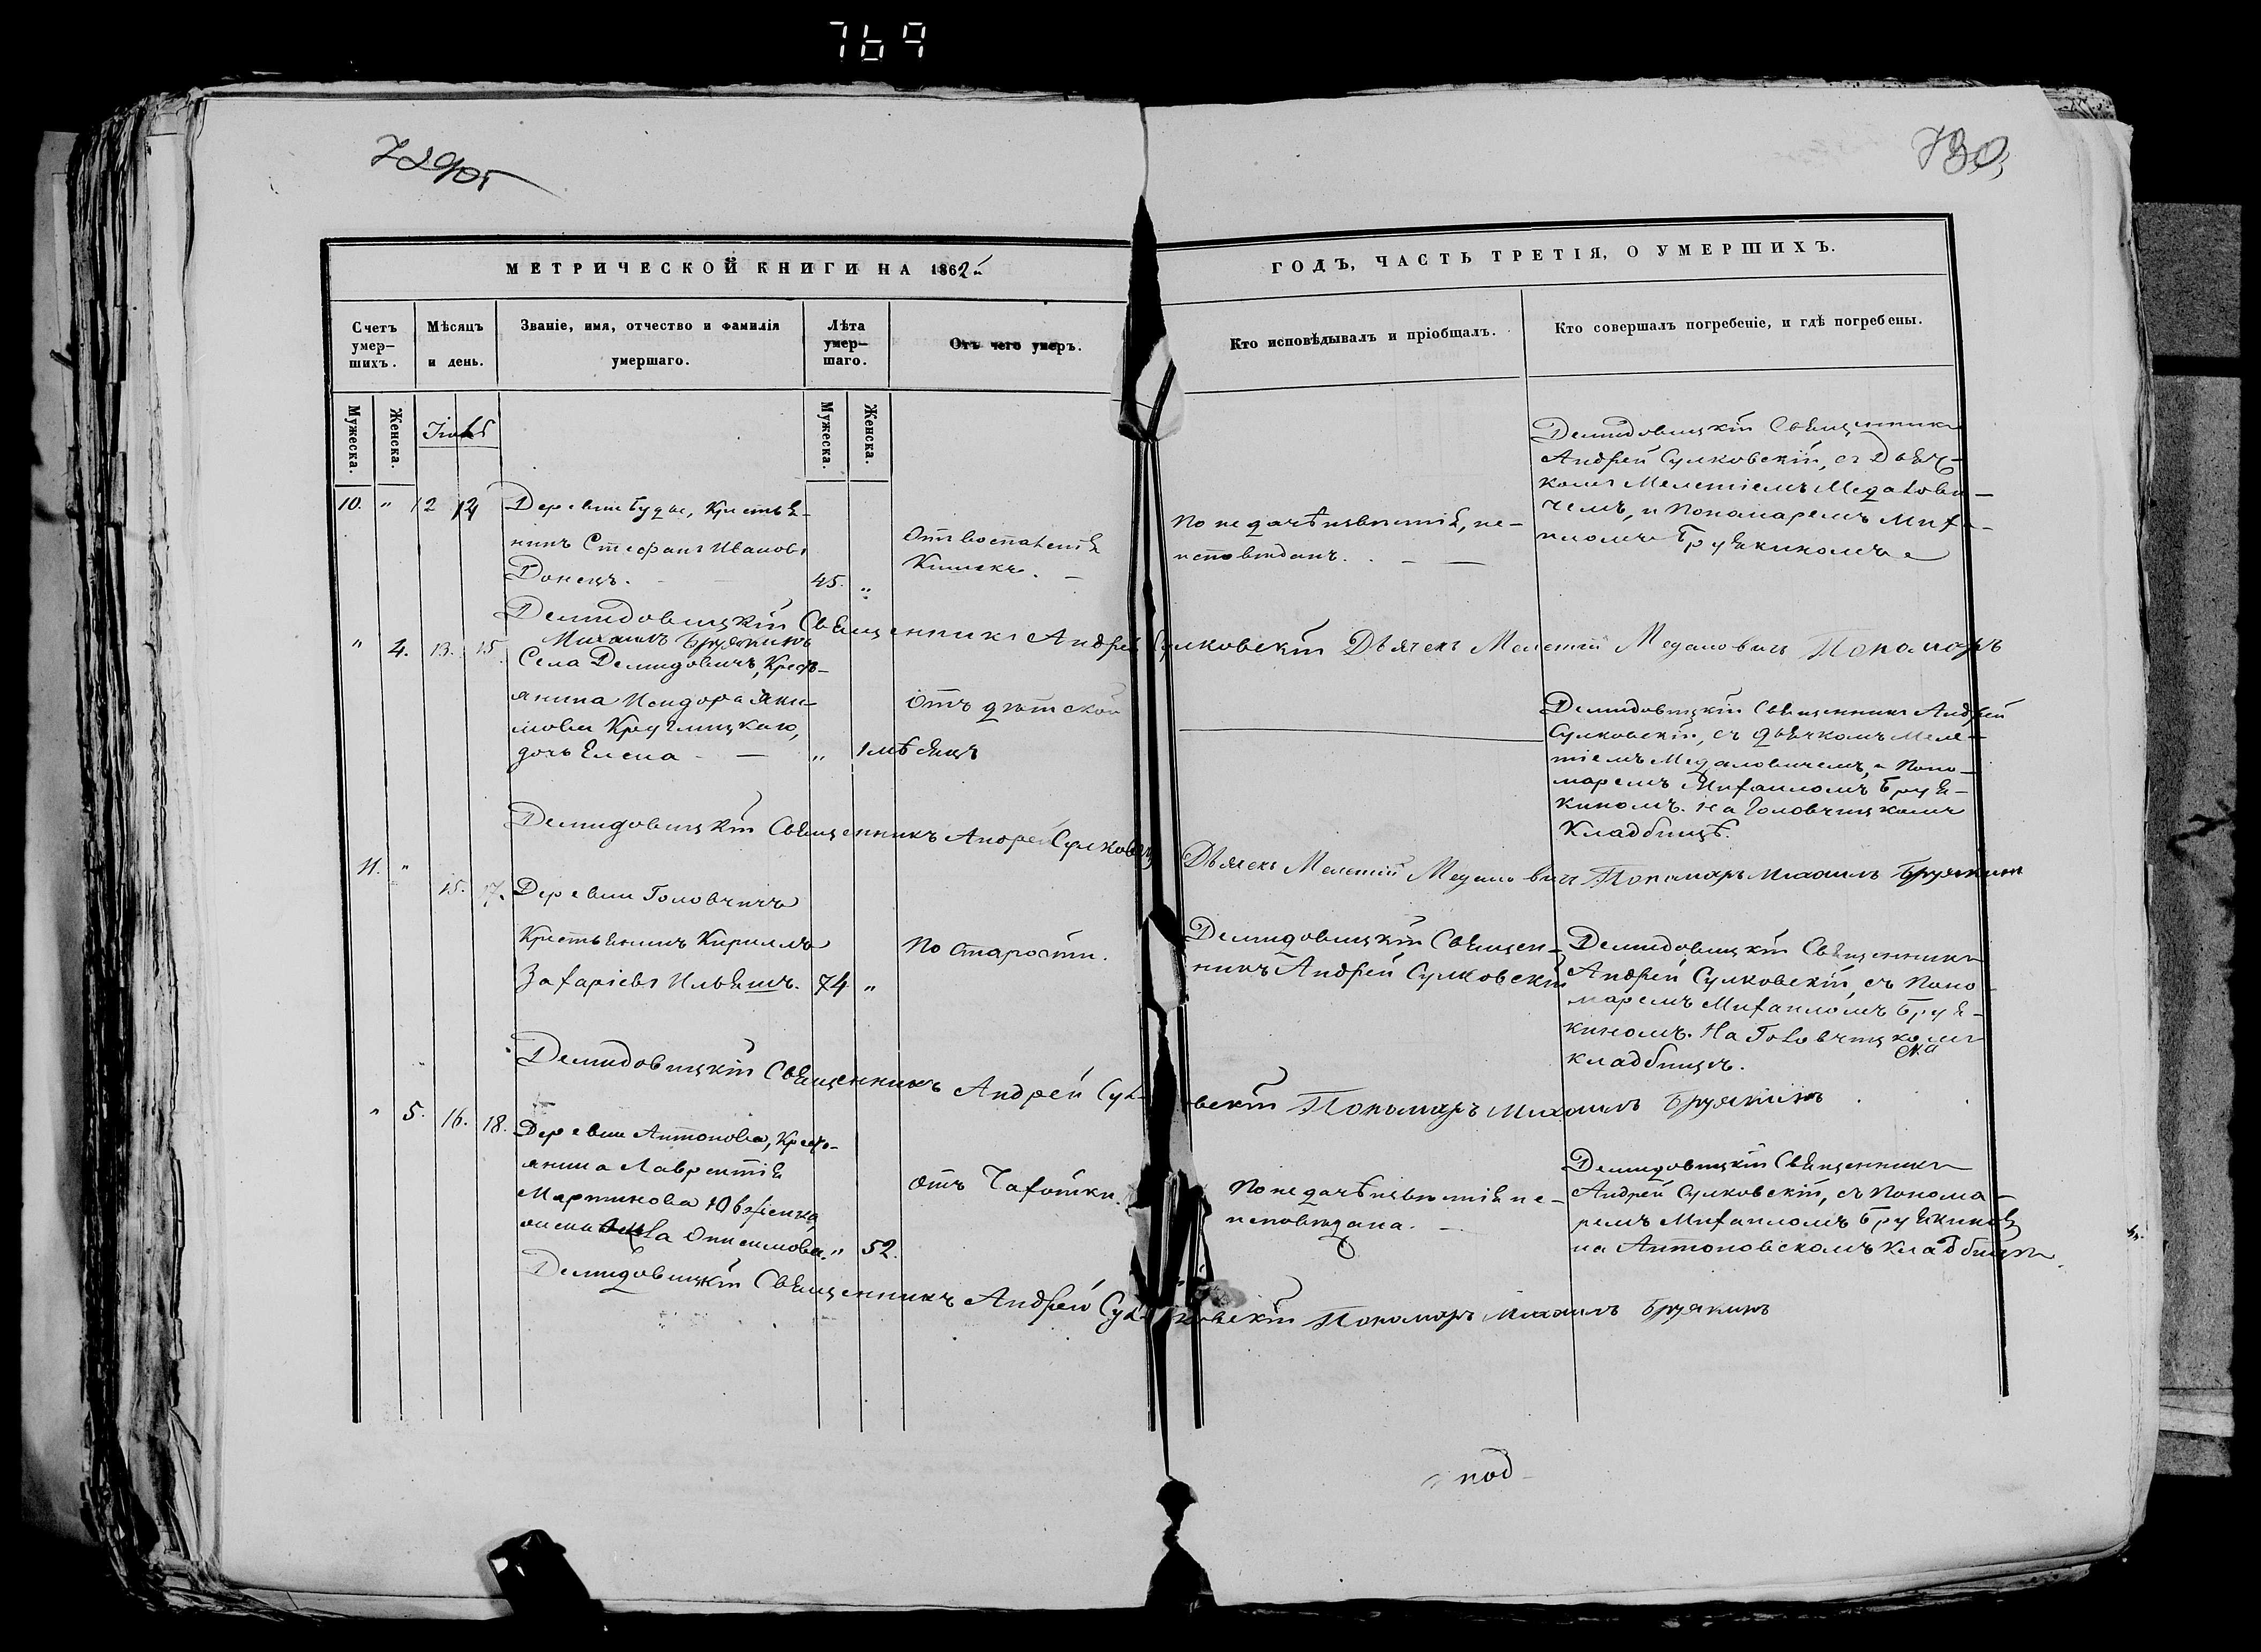 769
729об
730
МЕТРИЧЕСКОЙ КНИГИ НА 1862й
ГОДЪ, ЧАСТЬ ТРЕТІЯ, О УМЕРШИХЪ.
Счетъ умер-шихъ.
Мѣсяцъ и день.
Званіе, имя, отчество и фамилія умершаго.
Лѣта умер-шаго.
Отъ чего умеръ.
Кто исповѣдывалъ и пріобщалъ.
Кто совершалъ погребеніе, и гдѣ погребены.
Мужеска.
Женска.
Мужеска.
Женска.
10. " 12 14
Деревни Буды, Крестья-
нинъ Стефанъ Ивановъ
Донецъ. 45. "
Отъ воспаленія
Кишекъ.
По не дачѣ извѣстія, не-
исповѣданъ.
Демидовицкій Священникъ
Андрей Сулковскій, съ Дьяч-
комъ Мелетіемъ Медалови-
чемъ, и Пономаремъ Миха-
иломъ Брулкиномъ
Демидовицкій Священникъ Андрей Сулковскій Дьячекъ Мелетій Медаловичъ Пономарь
Михаилъ
" 4. 13. 15.
Села Демидовичъ, Крест-
янина Исидора Яки-
мова Круглицкаго,
дочь Елена " 1 мѣсяцъ
Отъ дѣтской
Демидовицкій Священникъ Андрей
Сулковскій, съ дьячкомъ Меле-
тіемъ Медаловичемъ, и Поно-
маремъ Михаиломъ
киномъ. на Головчицкомъ
Кладбищѣ.
Демидовицкій Священникъ Андрей Сулковскій
Дьячекъ Мелетій Медаловичъ Пономарь Михаилъ
11. " 15. 17.
Деревни Головчичъ
Крестьянинъ Кириллъ
Захаріевъ Ильяшъ. 74 "
По старости.
Демидовицкій Священ-
никъ Андрей Сулковскій
Демидовицкій Священникъ
Андрей Сулковскій, съ Поно-
маремъ Михаиломъ
киномъ. На Головчицкомъ
кладбищѣ.
Демидовицкій Священникъ Андрей Сулковскій Пономарь Михаилъ
" 5. 16. 18.
Деревни Антонова, Крест-
янина Лаврентія
Мартинова
жена Онисимова. " 52.
Отъ Чахотки.
По не дачѣ извѣстія не-
исповѣдана.
Демидовицкій Священникъ
Андрей Сулковскій, съ Понома-
ремъ Михаиломъ
на Антоновскомъ Кладбищѣ.
Демидовицкій Священникъ Андрей Сулковскій Пономарь Михаилъ
под